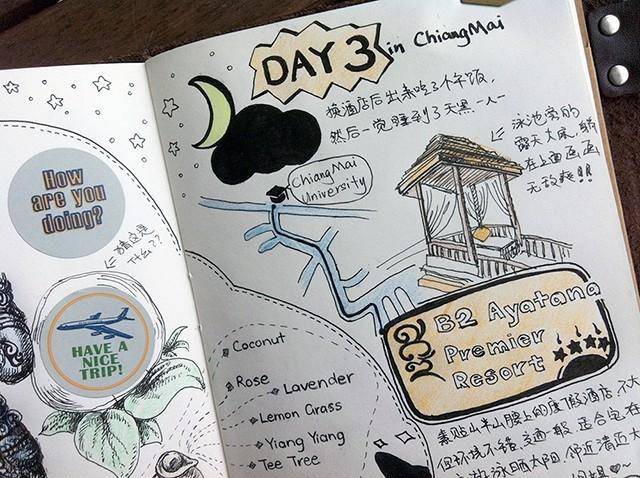 How
are you
doing?
猜这是
什么??
HAVE A
NICE
TRIP!
DAY 3 in ChiangMai
换酒店后出来吃了个午饭,
然后一觉睡到了天黑-人-
泳池旁的
露天大床,躺
在上面画画
无敌爽!!
ChiangMai
University
B2 Ayatana
Premier
Resort
Coconut
Rose
Lavender
Lemon Grass
Yiang Yiang
Tee Tree
素贴山半山腰上的度假酒店,不大
但环境不错,交通一般,适合宅在
游泳晒太阳,邻近清迈大